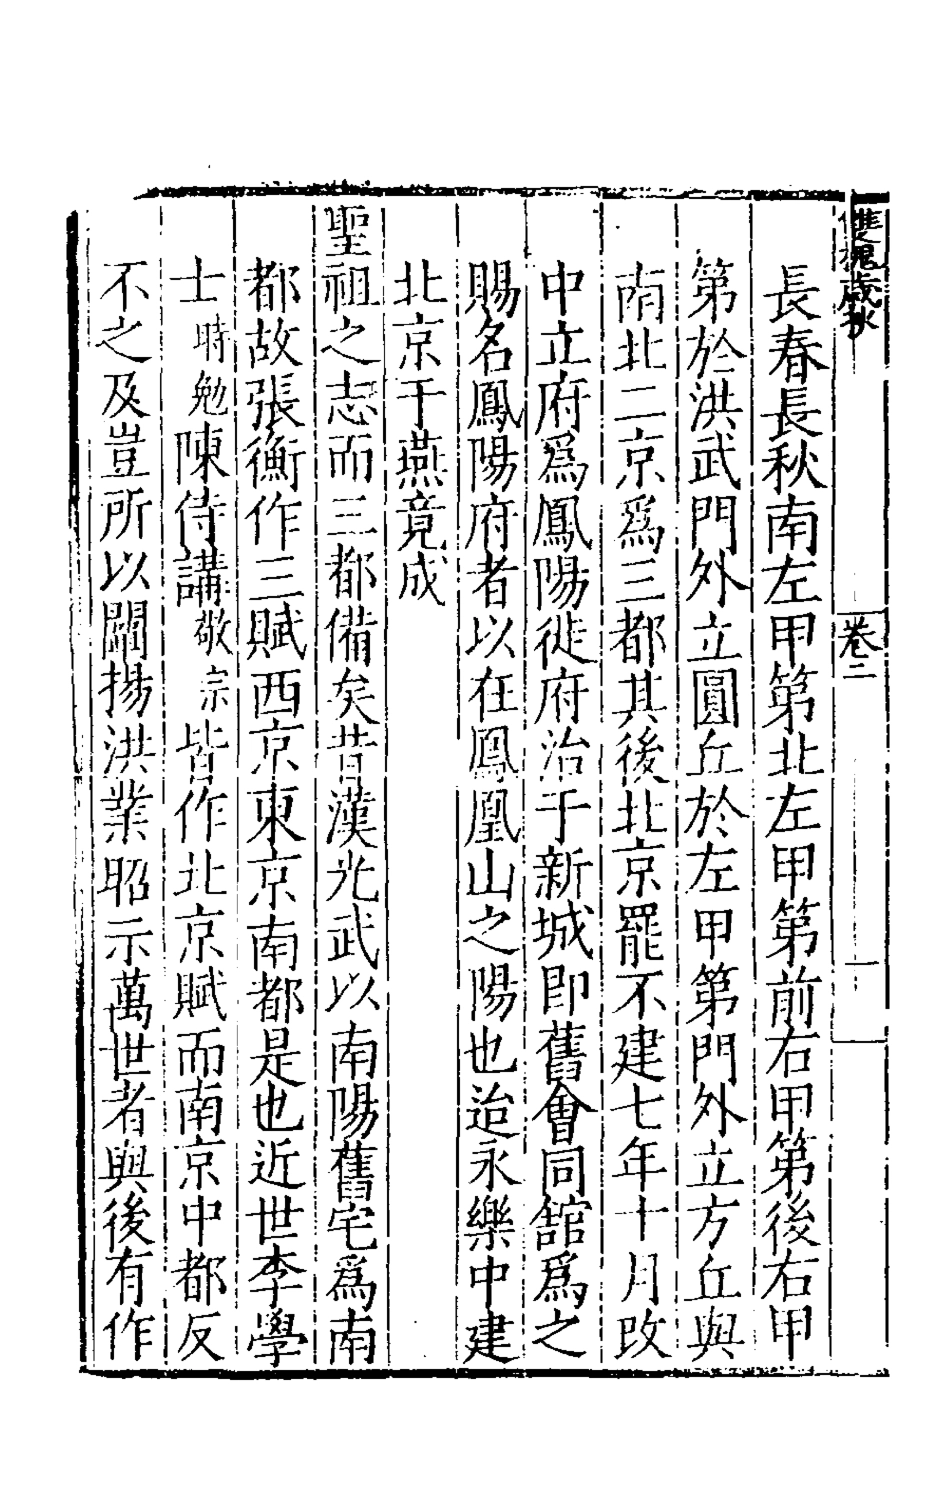 雙槐歲抄
卷二
長春長秋南左甲第北左甲第前右甲第後右甲
第於洪武門外立圓丘於左甲第門外立方丘與
南北二京爲三都其後北京罷不建七年十月改
中立府爲鳳陽徙府治于新城即舊會同館爲之
賜名鳳陽府者以在鳳凰山之陽也迨永樂中建
北京于燕竟成
聖祖之志而三都備矣昔漢光武以南陽舊宅爲南
都故張衡作三賦西京東京南都是也近世李學
士時勉陳侍講敬宗皆作北京賦而南京中都反
不之及豈所以闡揚洪業昭示萬世者與後有作